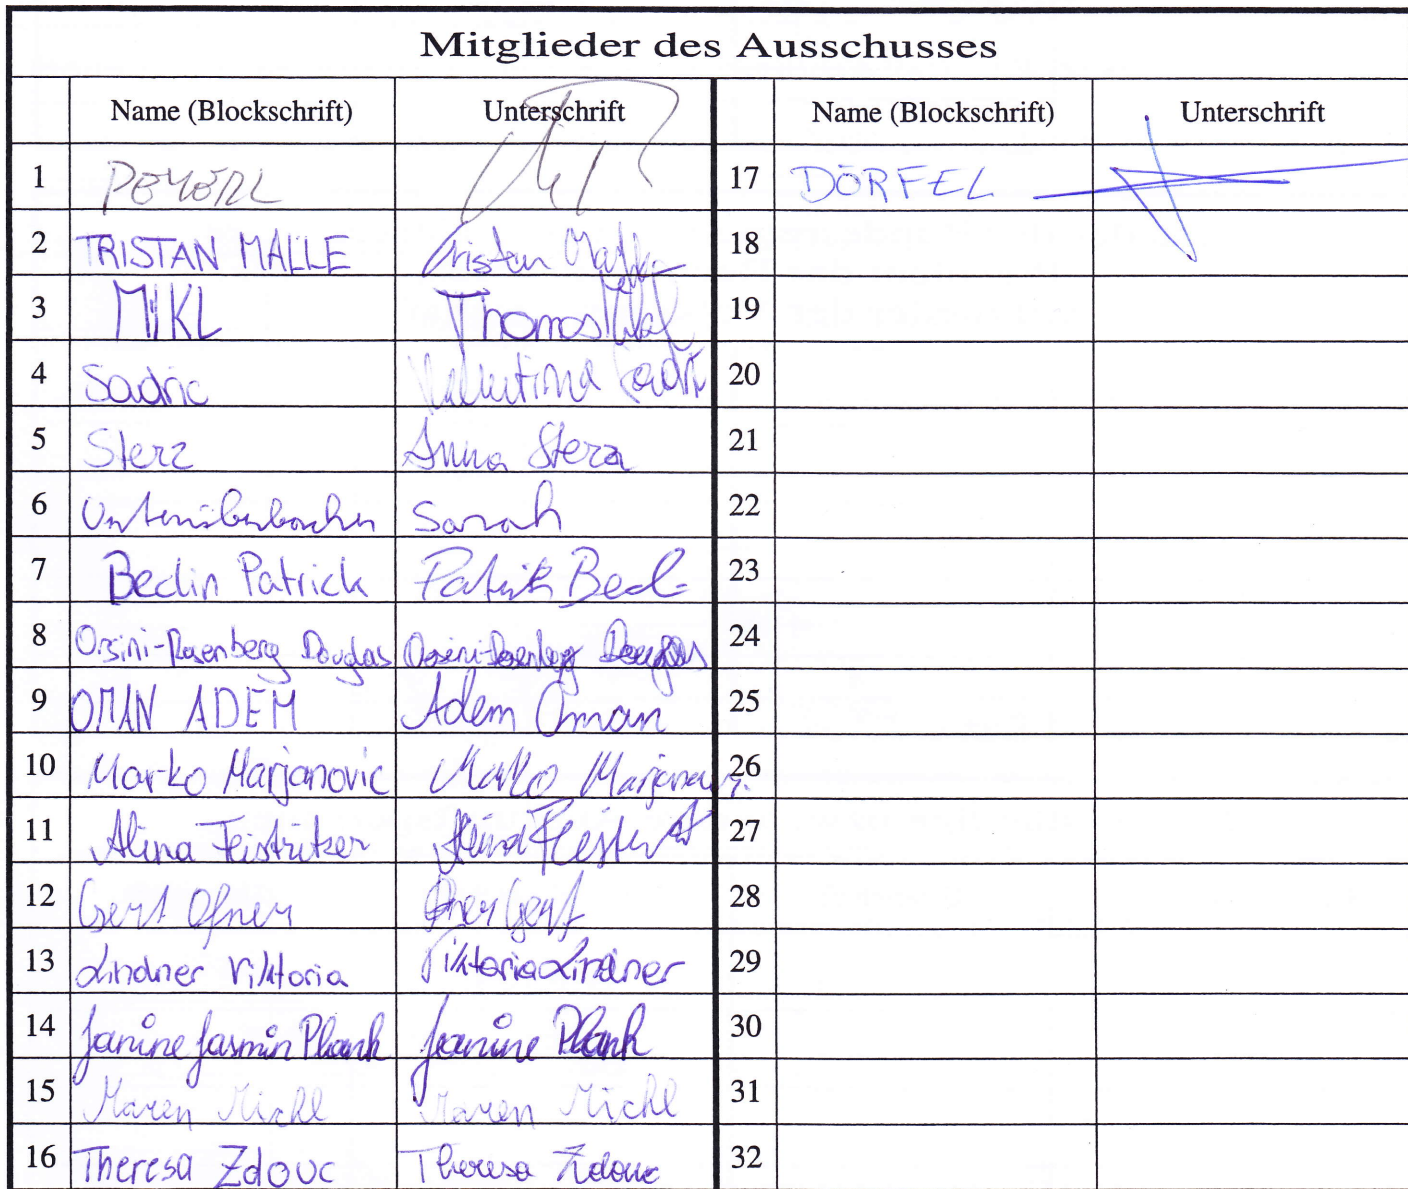 Mitglieder des Ausschusses
Name (Blockschrift) Unterschrift Name (Blockschrift) Unterschrift
1 PEYERL 17 DÖRFEL
2 TRISTAN MALLE Tristan Malle 18
3 MIKL Thomas Mikl 19
4 Sadric Valentina Sadric 20
5 Sterz Anna Sterz 21
6 Sarah 22
7 Beclin Patrick Patrick Becl 23
8 Orsini-Rosenberg Douglas Orsini-Rosenberg Douglas 24
9 OMAN ADEM Adem Oman 25
10 Marko Marjanovic Marko Marjanovic 26
11 Alina Feistritzer Alina 27
12 Gert Ofner Ofner Gert 28
13 Lindner Viktoria Viktoria Lindner 29
14 Janine Jasmin Plank Janine Plank 30
15 Maren Michl Maren Michl 31
16 Theresa Zdouc Theresa Zdouc 32